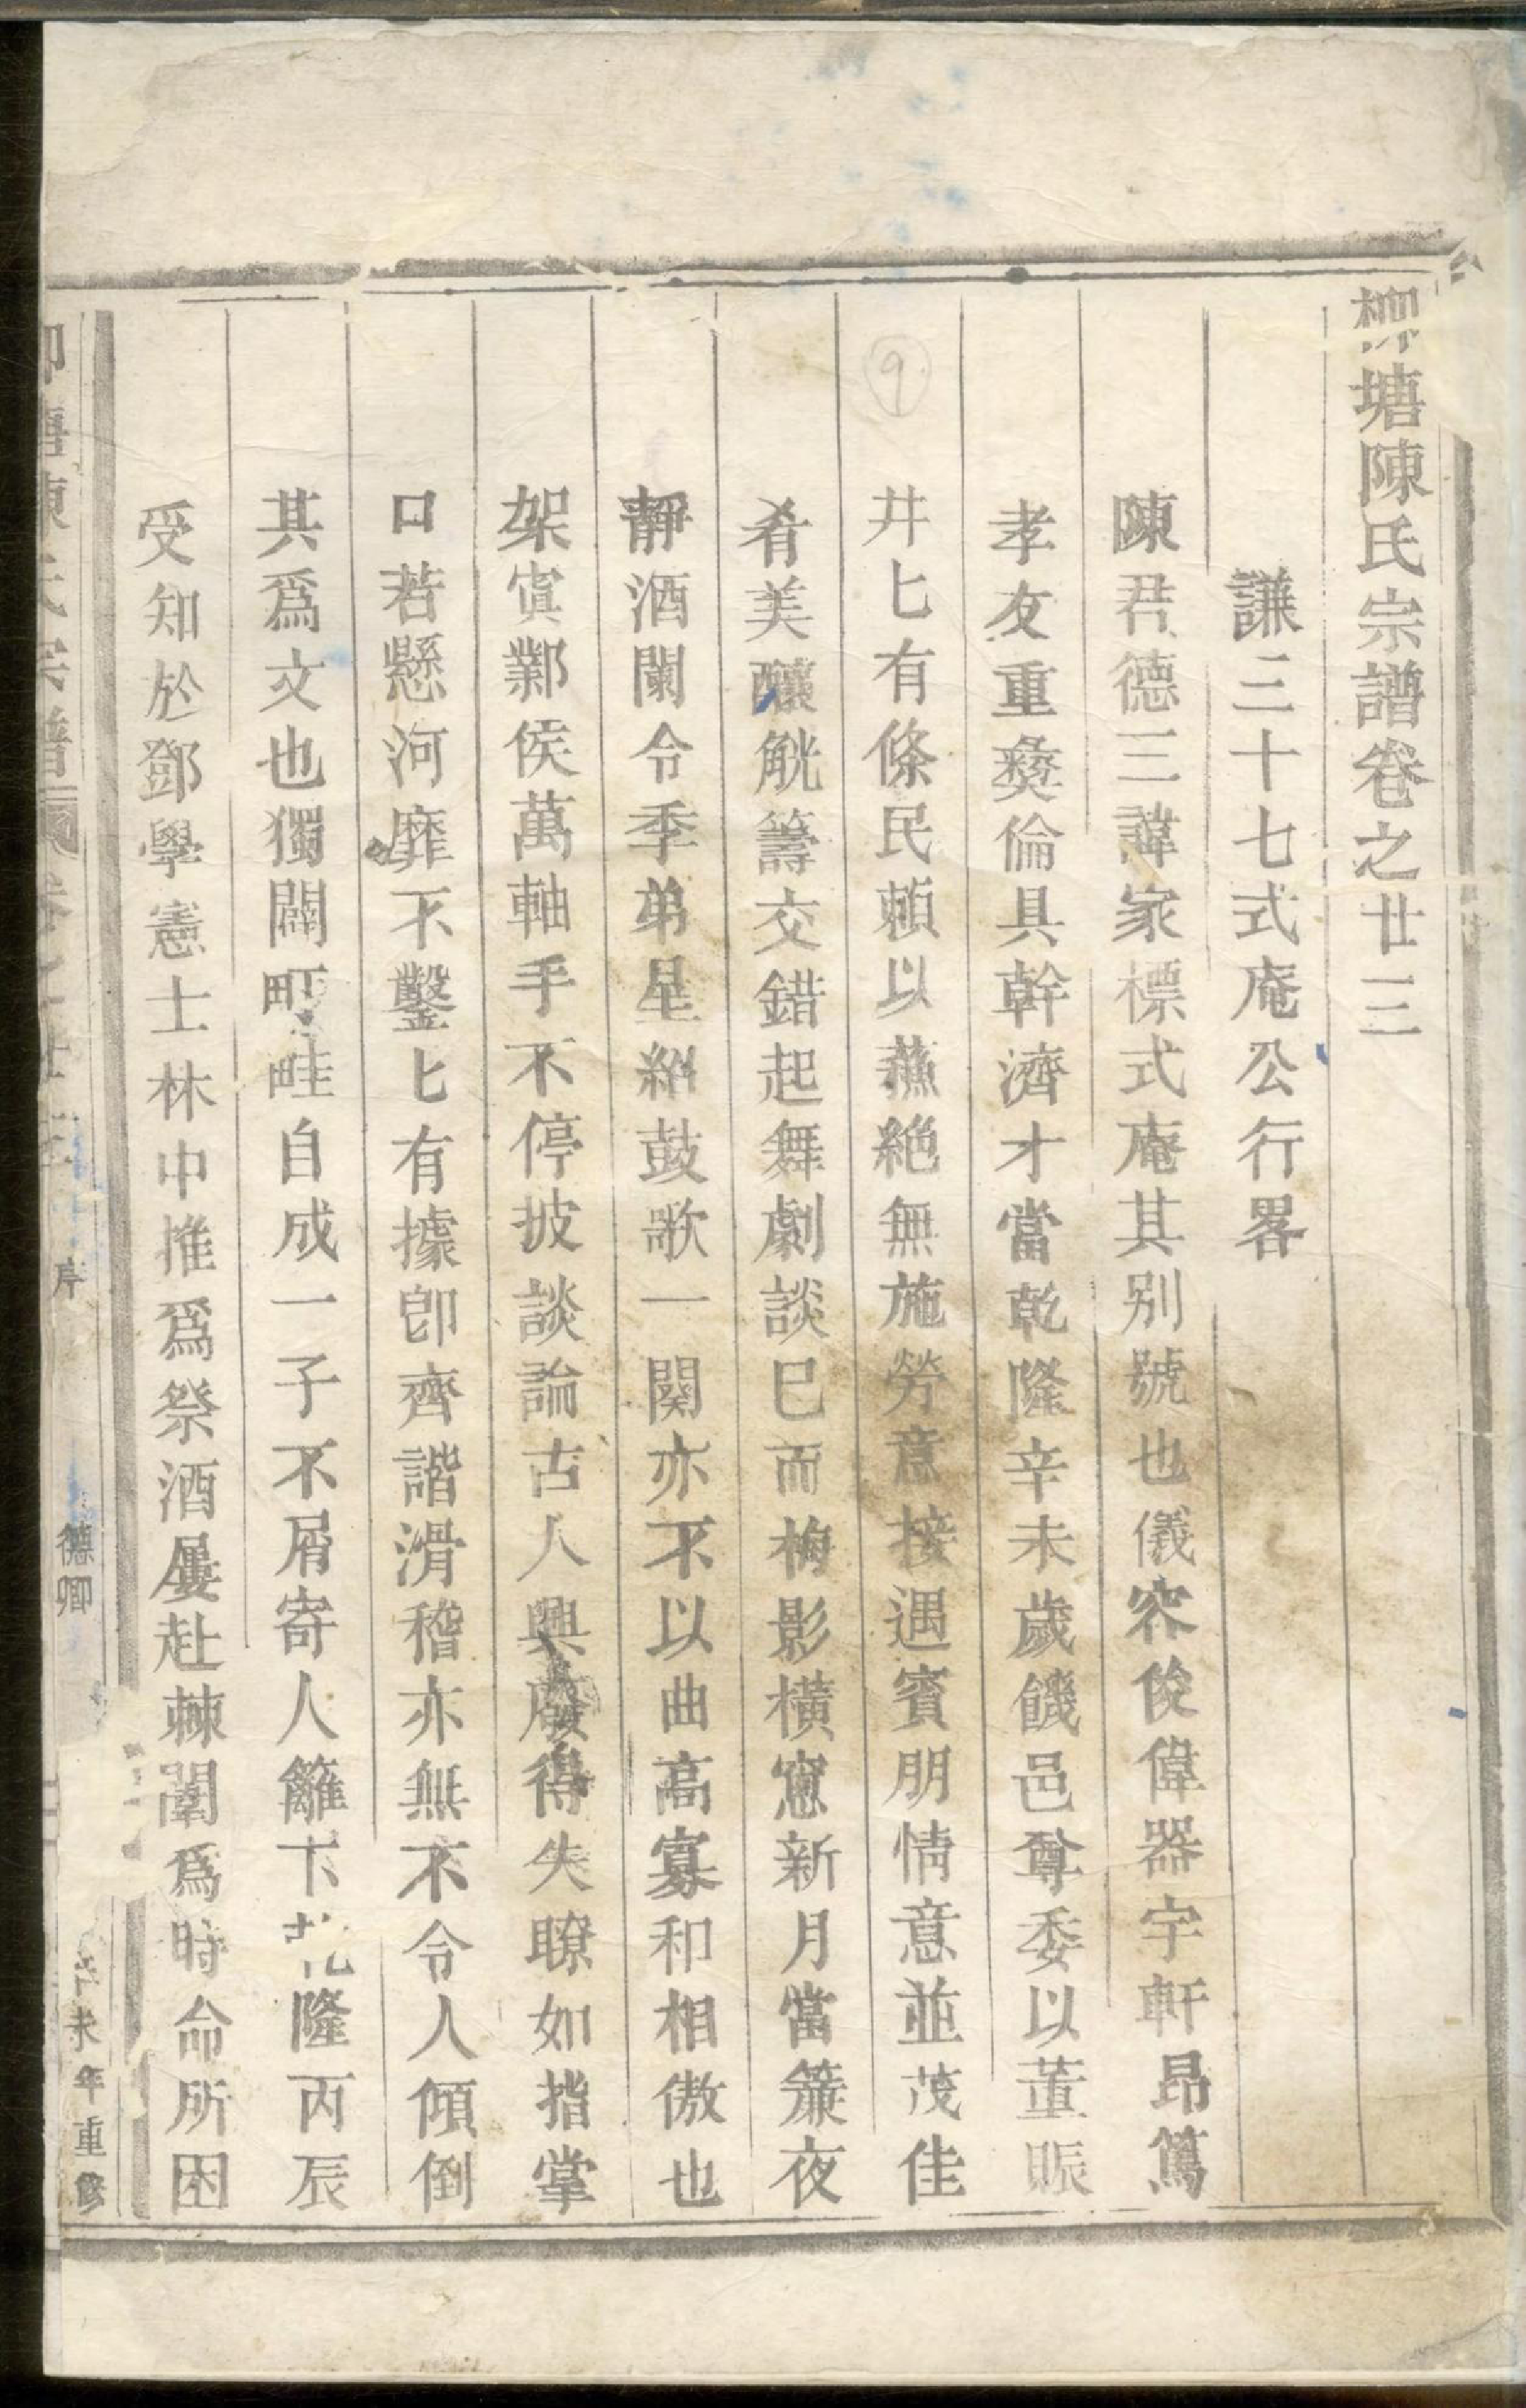 柳塘陳氏宗譜卷之廿三
謙三十七式庵公行畧
陳君德三諱家標式庵其別號也儀容俊偉器宇軒昂篤
孝友重彜倫具幹濟才當乾隆辛未歲饑邑尊委以董賑
井匕有條民賴以蘇絶無施勞意接遇賓朋情意並茂佳
肴美釀觥籌交錯起舞劇談巳而梅影橫窻新月當簾夜
靜酒闌令季弟星絅鼓歌一闋亦不以曲高寡和相傲也
架寘鄴侯萬軸手不停披談論古人興廢得失瞭如指掌
口若懸河靡不鑿匕有據卽齊諧滑稽亦無不令人傾倒
其爲文也獨闢町畦自成一子不屑寄人籬下乾隆丙辰
受知於鄧學憲士林中推爲祭酒屢赴棘闈爲時命所困
塘陳氏宗譜 卷之廿三 序 德卿 辛未年重修
9